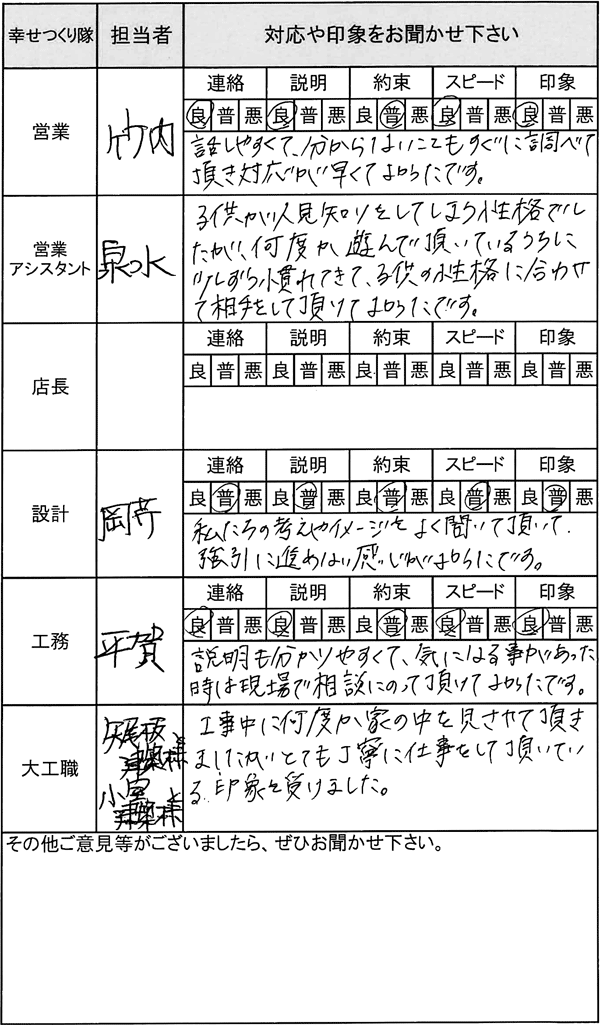 幸せつくり隊 担当者 対応や印象をお聞かせ下さい
営業 竹内
連絡 説明 約束 スピード 印象
良 普 悪 良 普 悪 良 普 悪 良 普 悪 良 普 悪
話しやすくて、分からないこともすぐに調べて
頂き対応が早くてよかったです。
営業
アシスタント 泉水
子供が人見知りをしてしまう性格でし
たが、何度か遊んで頂いているうちに
少しずつ慣れてきて、子供の性格に合わせ
て相手をして頂けてよかったです。
店長
連絡 説明 約束 スピード 印象
良 普 悪 良 普 悪 良 普 悪 良 普 悪 良 普 悪
設計 岡芹
連絡 説明 約束 スピード 印象
良 普 悪 良 普 悪 良 普 悪 良 普 悪 良 普 悪
私たちの考えやイメージをよく聞いて頂いて、
強引に進めない感じがよかったです。
工務 平賀
連絡 説明 約束 スピード 印象
良 普 悪 良 普 悪 良 普 悪 良 普 悪 良 普 悪
説明も分かりやすくて、気になる事があった
時は現場で相談にのって頂けてよかったです。
大工職
矢尾板
小屋
工事中に何度か家の中を見させて頂き
ましたがいとても丁寧に仕事をして頂いてい
る印象を受けました。
その他ご意見等がございましたら、ぜひお聞かせ下さい。